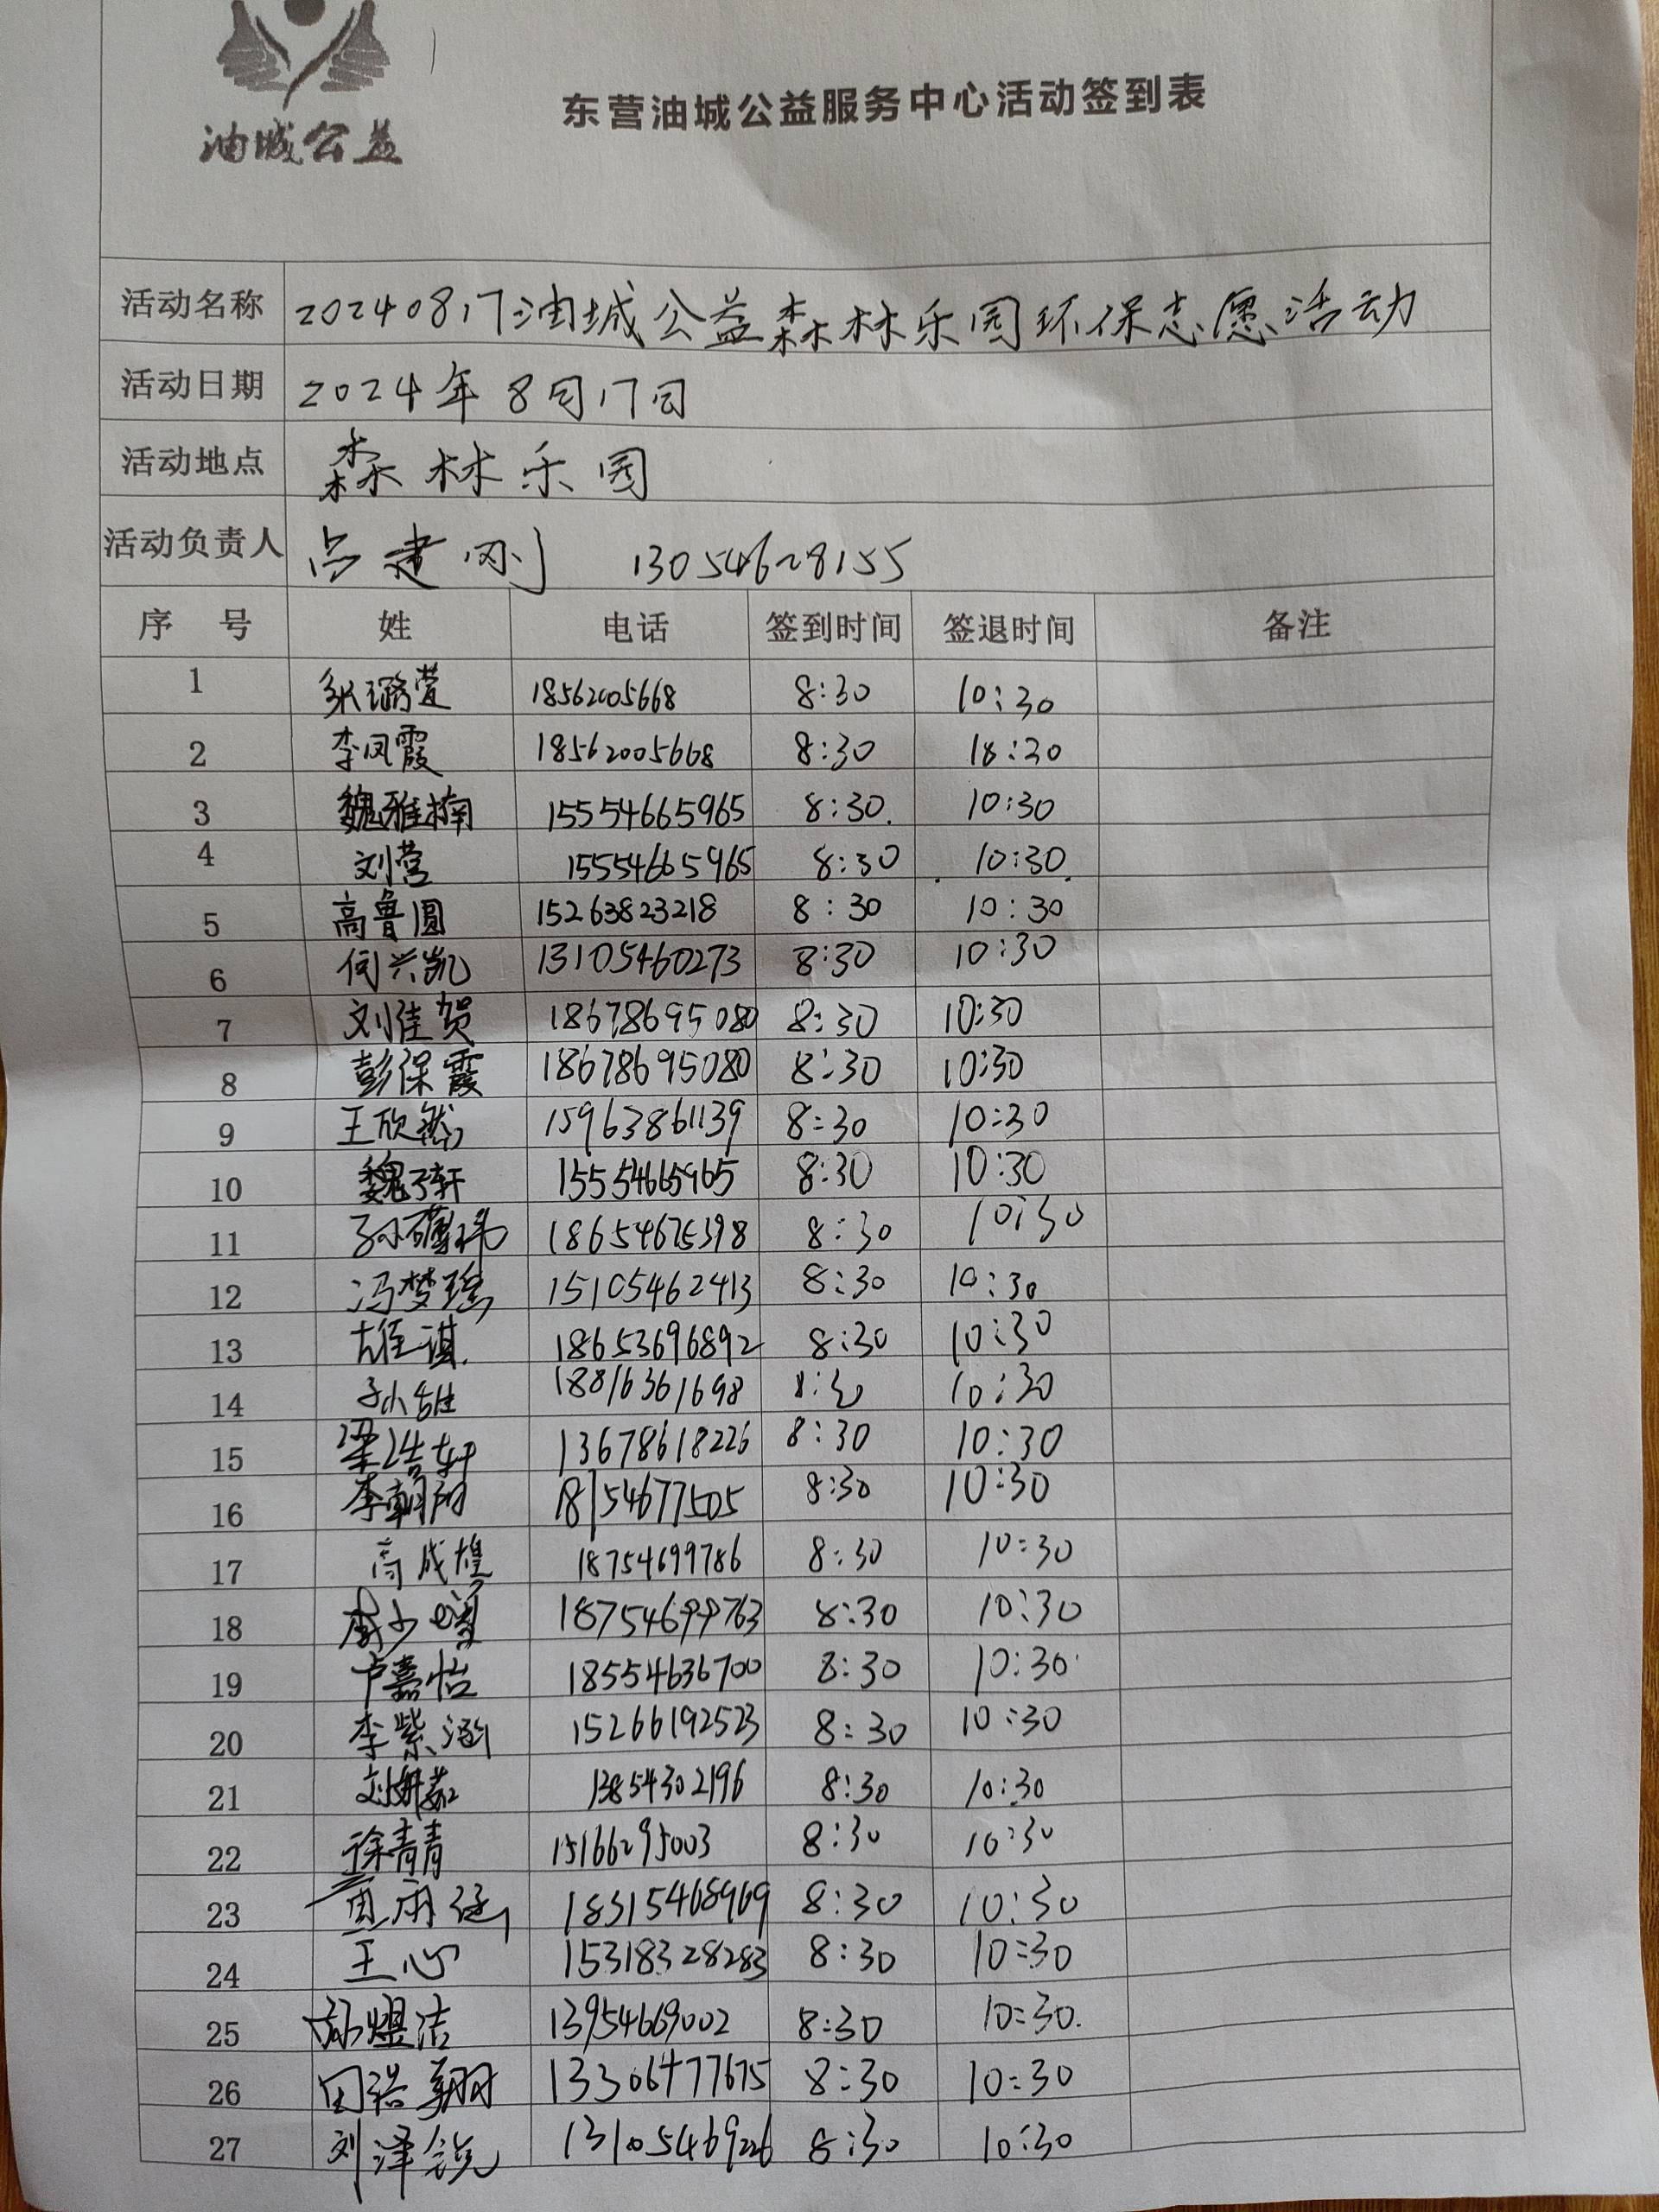 油城公益
东营油城公益服务中心活动签到表
活动名称 20240817油城公益森林乐园环保志愿活动
活动日期 2024年8月17日
活动地点 森林乐园
活动负责人 吕建刚 13054628155
序 号 姓 电话 签到时间 签退时间 备注
1 张璐萱 18562005668 8:30 10:30
2 李凤霞 18562005668 8:30 10:30
3 魏雅楠 15554665965 8:30 10:30
4 刘营 15554665965 8:30 10:30
5 高鲁圆 15263823218 8:30 10:30
6 何兴凯 13105460273 8:30 10:30
7 刘佳贺 18678695080 8:30 10:30
8 彭保霞 18678695080 8:30 10:30
9 王欣然 15963861139 8:30 10:30
10 魏子轩 15554665965 8:30 10:30
11 18654675398 8:30 10:30
12 冯梦瑶 15105462413 8:30 10:30
13 18653696892 8:30 10:30
14 18816361698 8:30 10:30
15 梁浩轩 13678618226 8:30 10:30
16 李朝阳 18154677505 8:30 10:30
17 高成煌 18754699786 8:30 10:30
18 18754699763 8:30 10:30
19 卢嘉怡 18554636700 8:30 10:30
20 李紫涵 15266192523 8:30 10:30
21 13854302196 8:30 10:30
22 徐青青 15166295003 8:30 10:30
23 18315468969 8:30 10:30
24 王心 15318328283 8:30 10:30
25 13954669002 8:30 10:30
26 田浩翔 13306477675 8:30 10:30
27 刘泽锐 13105469226 8:30 10:30